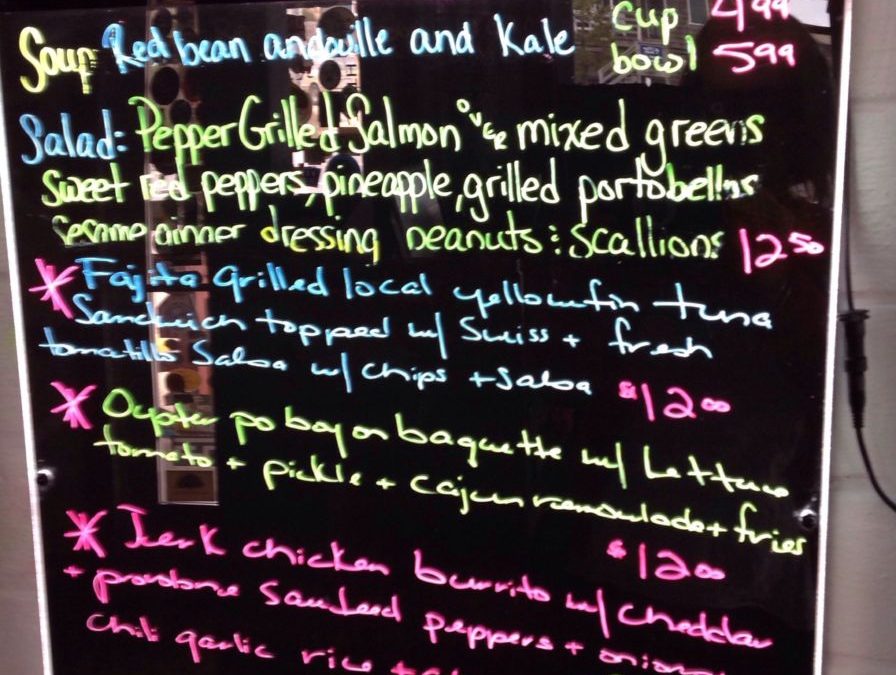 Soup Red bean andouille and Kale cup 4.99
bowl 5.99
Salad: Pepper Grilled Salmon over mixed greens
sweet red peppers, pineapple, grilled portobellos
sesame ginger dressing peanuts & scallions 12.50
* Fajita Grilled local yellowfin tuna
Sandwich topped w/ Swiss + fresh
tomatillo Salsa w/ chips + salsa $12.00
* Oyster po boy on baguette w/ Lettuce
tomato + pickle + cajun remoulade + fries
$12.00
* Jerk chicken burrito w/ Cheddar
+ provolone Sauteed peppers + onions
chili garlic rice +